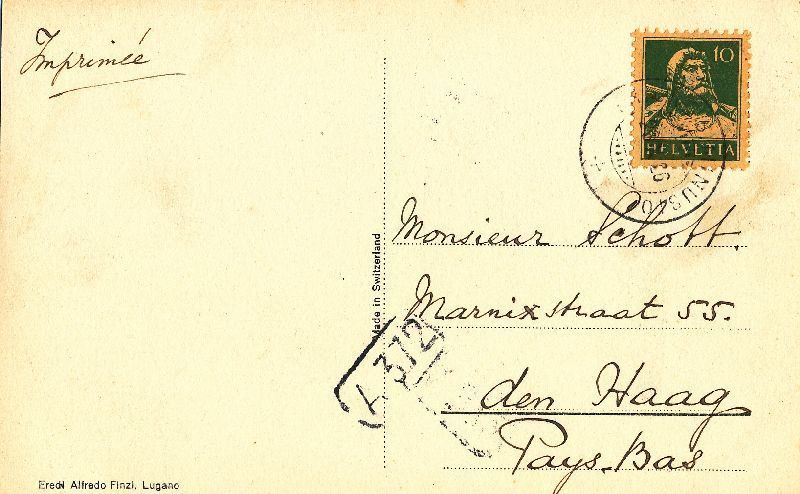 Imprimée
10
HELVETIA
Monsieur Schott.
Marnixstraat 55.
den Haag
Pays-Bas
Made in Switzerland
A 372
Eredi Alfredo Finzi, Lugano